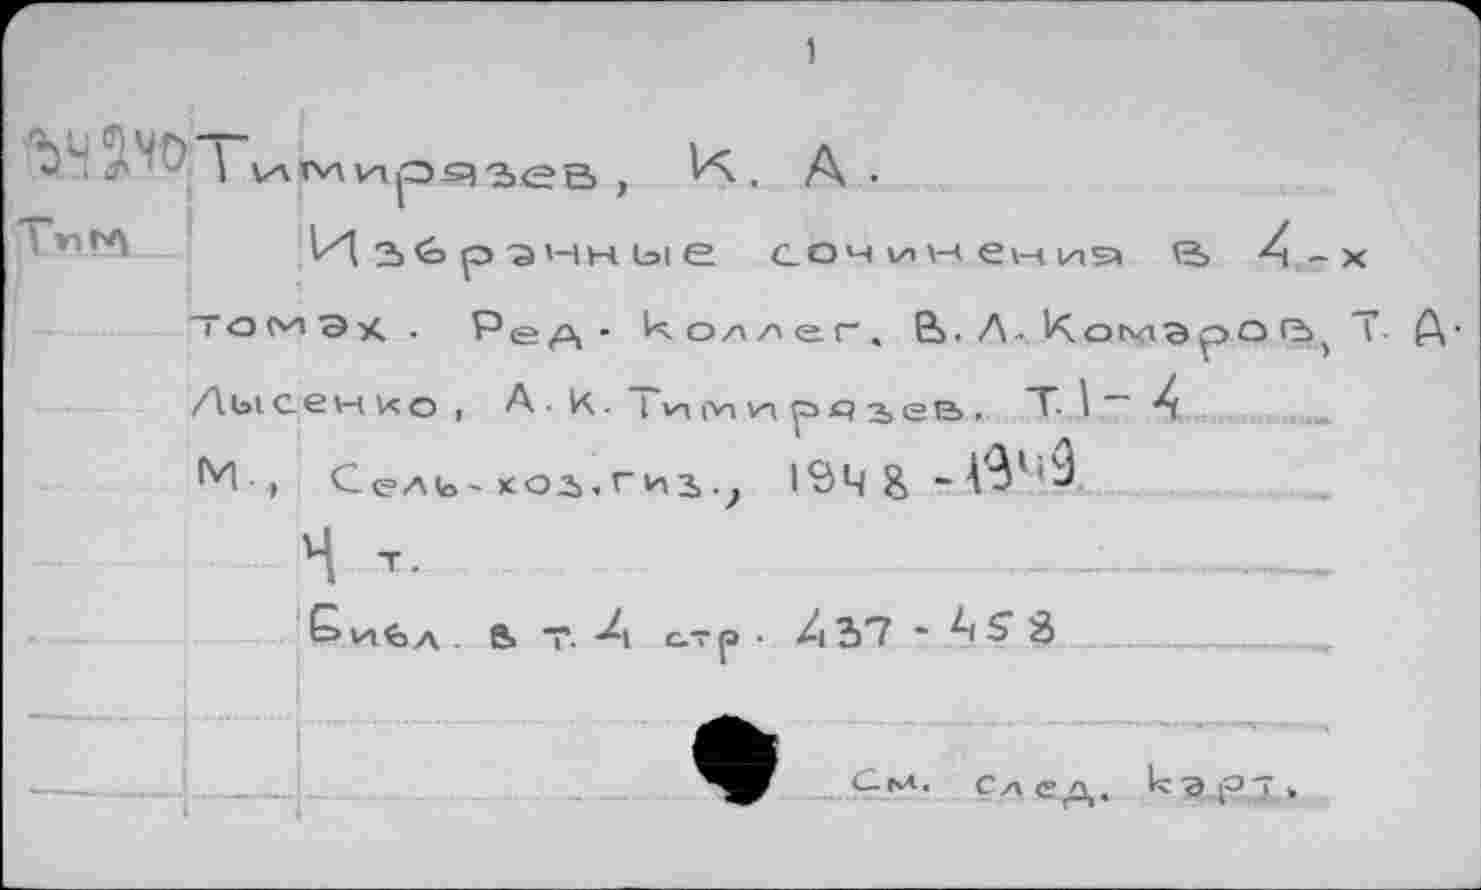 1
34940 Тимирязев, К. А.
Тим Избранные сочинения в 4-х
томах. Ред. коллег. В. Л. Комаров, Т. Д.
Лысенко, А. К. Тимирязев. Т. 1-4
М., Сель-хоз.гиз., 1948-1949
4 т.
Библ. в т. 4 стр. 437-458
См. след. карт.